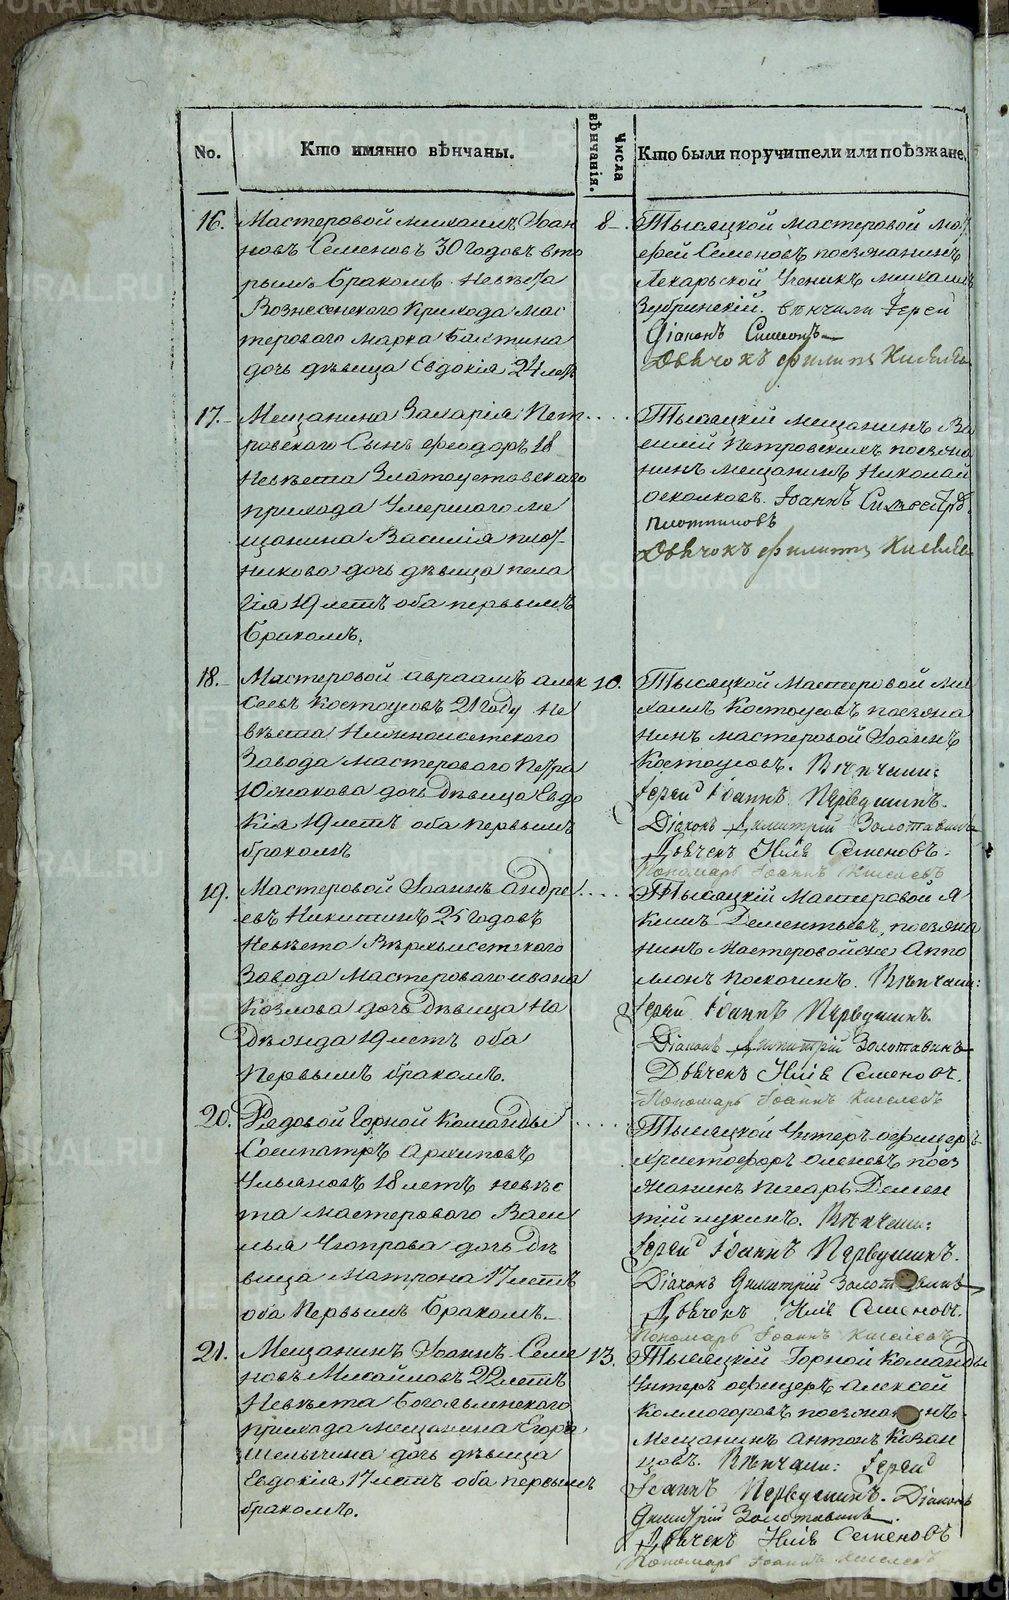 No.
Кто имянно вѣнчаны.
Числа вѣнчанія.
Кто были поручители или поѣзжане.
16.
Мастеровой Михаилъ Іоан
новъ Семеновъ 30 годовъ вто
рымъ бракомъ. Невѣста
Вознесенскаго прихода мас
тероваго Марка
дочь дѣвица Евдокія 24 лѣтъ
8
Тысяцкой мастеровой
Семеновъ поезжанинъ
Лекарьской Ученикъ Михаилъ
Зубринскій. вѣнчали Іерей
Діаконъ Симеонъ
Дьячокъ Филиппъ
17.
Мещанина Захарія Пет
ровскаго сынъ Феодоръ 18
Невѣста Златоустовскаго
прихода Умершаго ме
щанина Василія Плот
никова дочь дѣвица Пела
гія 19 летъ оба первымъ
бракомъ.
Тысяцкій мещанинъ Ва
силій Петровскихъ поезжа
нинъ мещанинъ Николай
Осколковъ. Іоаннъ
Плотниковъ
Дьячокъ Филиппъ
18.
Мастеровой Авраамъ Алек
сеевъ Костоусовъ 21 году Не
вѣста Нижноисетскаго
Завода мастероваго Петра
Южакова дочь дѣвица Евдо
кія 19 летъ оба первымъ
бракомъ
10.
Тысяцкой Мастеровой Ми
хаилъ Костоусовъ поезжа
нинъ мастеровой Іоаннъ
Костоусовъ. Вѣнчали:
Іерей Іоаннъ Первушинъ.
Діаконъ Димитрій Золотавинъ
Дьячекъ Нилъ Семеновъ.
Пономарь Іоаннъ Киселевъ
19.
Мастеровой Іоаннъ Андре
евъ Никитинъ 25 годовъ
Невѣста Верхъисетскаго
Завода Мастероваго Ивана
Козлова дочь дѣвица На
дѣжда 19 летъ оба
первымъ бракомъ.
Тысяцкій Мастеровой Я
кимъ Дементьевъ, поезжа
нинъ Мастеровой же Аппо
лонъ Поскочинъ. Вѣнчали:
Іерей Іоаннъ Первушинъ.
Діаконъ Димитрій Золотавинъ
Дьячекъ Нилъ Семеновъ.
Пономарь Іоаннъ Киселевъ
20.
Рядовой Горной Команды
Сосипатръ Архиповъ
Ульяновъ 18 летъ невѣс
та мастероваго Васи
лья Чюпрова дочь дѣ
вица Матрона 17 летъ
оба первымъ бракомъ.
Тысяцкой Унтеръ-офицеръ
Христофоръ Оленевъ поез
жанинъ писарь Демен
тій Щукинъ. Вѣнчали:
Іерей Іоаннъ Первушинъ.
Діаконъ Димитрій Золотавинъ
Дьячекъ Нилъ Семеновъ.
Пономарь Іоаннъ Киселевъ
21.
Мещанинъ Іоаннъ Семе
новъ Михайловъ 22 летъ
Невѣста Богоявленскаго
прихода мещанина Егора
Шелычина дочь дѣвица
Евдокія 17 летъ оба первымъ
бракомъ.
13.
Тысяцкій Горной Команды
Унтеръ офицеръ Алексей
Колмогоровъ поезжанинъ
Мещанинъ Антонъ Казан
цовъ. Вѣнчали: Іерей
Іоаннъ Первушинъ. Діаконъ
Димитрій Золотавинъ.
Дьячекъ Нилъ Семеновъ
Пономарь Іоаннъ Киселевъ
METRIKI.GASO-URAL.RU